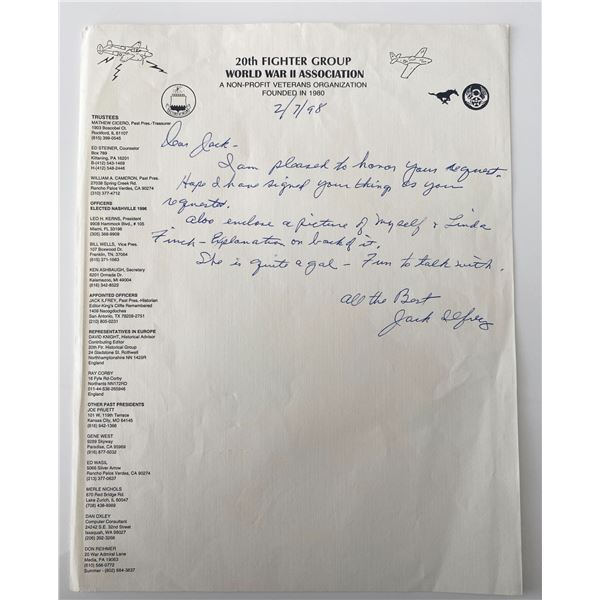 20th FIGHTER GROUP
WORLD WAR II ASSOCIATION
A NON-PROFIT VETERANS ORGANIZATION
FOUNDED IN 1980
2/7/98
Dear Jack-
I am pleased to honor your request.
Hope I have signed your things as you
requested.
Also enclose a picture of myself & Linda
Finch - Explanation on back of it.
She is quite a gal - Fun to talk with.
All the Best
Jack Ilfrey
TRUSTEES
MATHEW CICERO, Past Pres.-Treasurer
1903 Boscobel Ct.
Rockford, IL 61107
(815) 399-0545
ED STEINER, Counselor
Box 789
Kittanning, PA 16201
B-(412) 543-1469
H-(412) 548-2446
WILLIAM A. CAMERON, Past Pres.
27038 Spring Creek Rd.
Rancho Palos Verdes, CA 90274
(310) 377-4712
OFFICERS
ELECTED NASHVILLE 1996
LEO H. KERNS, President
9908 Hammock Blvd., # 105
Miami, FL 33196
(305) 388-9909
BILL WELLS, Vice Pres.
107 Boxwood Dr.
Franklin, TN. 37064
(615) 371-1663
KEN ASHBAUGH, Secretary
6201 Ormada Dr.
Kalamazoo, MI 49004
(616) 342-8522
APPOINTED OFFICERS
JACK ILFREY, Past Pres.-Historian
Editor-King's Cliffe Remembered
1409 Nacogdoches
San Antonio, TX 78209-2751
(210) 805-0231
REPRESENTATIVES IN EUROPE
DAVID KNIGHT, Historical Advisor
Contributing Editor
20th Ftr. Historical Group
24 Gladstone St. Rothwell
Northhamptonshire NN 1420R
England
RAY CORBY
16 Fyle Rd-Corby
Northants NN172RD
011-44-536-265946
England
OTHER PAST PRESIDENTS
JOE PRUETT
101 W. 119th Terrace
Kansas City, MO 64145
(816) 942-1366
GENE WEST
9289 Skyway
Paradise, CA 95969
(916) 877-5032
ED WASIL
5066 Silver Arrow
Rancho Palos Verdes, CA 90274
(213) 377-0637
MERLE NICHOLS
670 Red Bridge Rd.
Lake Zurich, IL 60047
(708) 438-8989
DAN OXLEY
Computer Consultant
24242 S.E. 32nd Street
Issaquah, WA 98027
(206) 392-3208
DON REIHMER
20 War Admiral Lane
Media, PA 19063
(610) 566-0772
Summer - (802) 584-3637